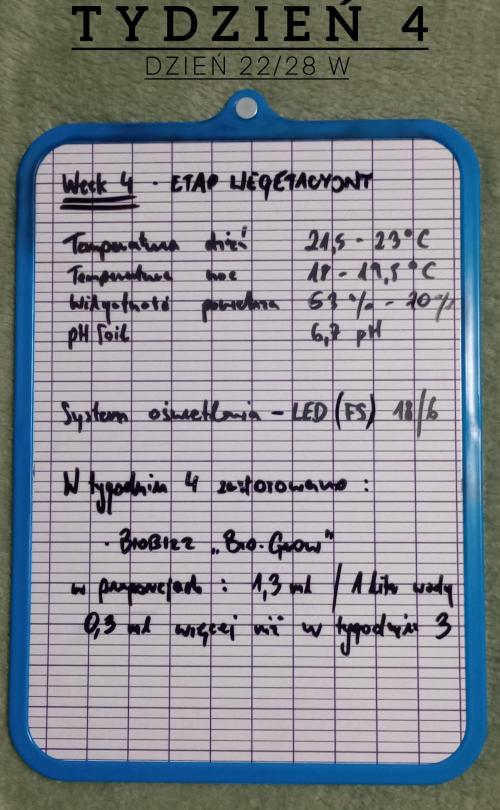 TYDZIEŃ 4
DZIEŃ 22/28 W
Week 4 - ETAP WEGETACYJNY
Temperatura dzień 21,5 - 23°C
Temperatura noc 18 - 19,5°C
Wilgotność powietrza 53 % - 70%
pH Soil 6,7 pH
System oświetlenia - LED (FS) 18/6
W tygodniu 4 zastosowano :
· BioBizz „Bio·Grow"
w proporcjach : 1,3 ml / 1 Litr wody
0,3 ml więcej niż w tygodniu 3